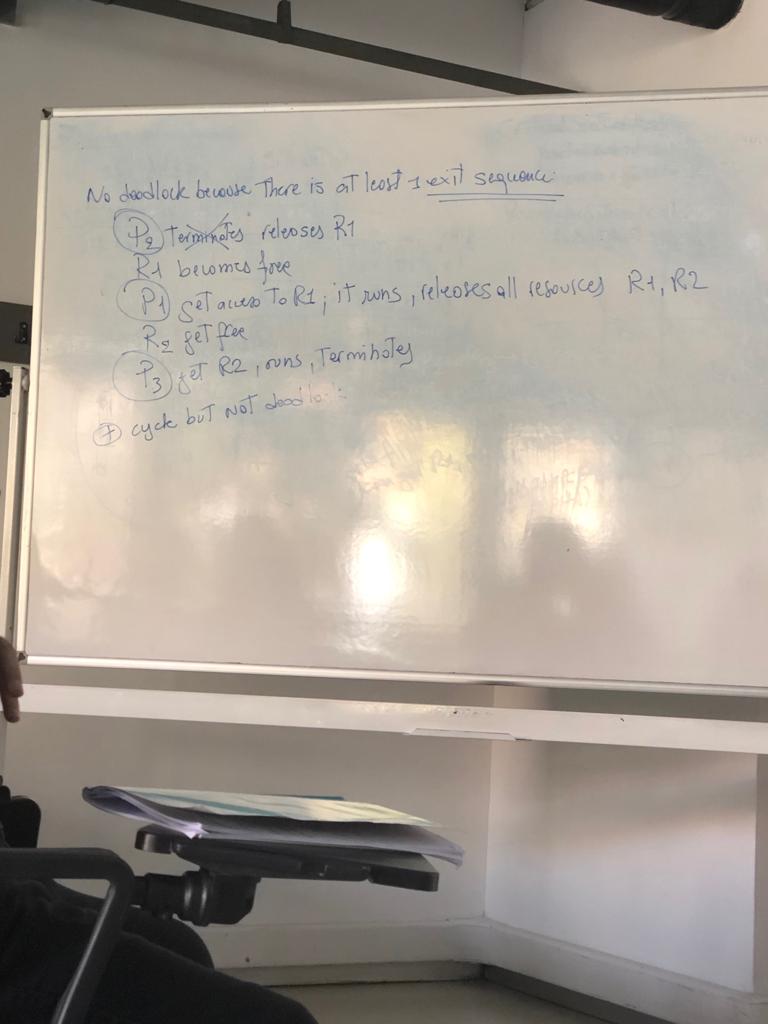 No deadlock because There is at least 1 exit sequence:
P2 Terminates releases R1
R1 becomes free
P1 get access To R1; it runs, releases all resources R1, R2
R2 get free
P3 get R2, runs, Terminates
+ cycle but NOT deadlo